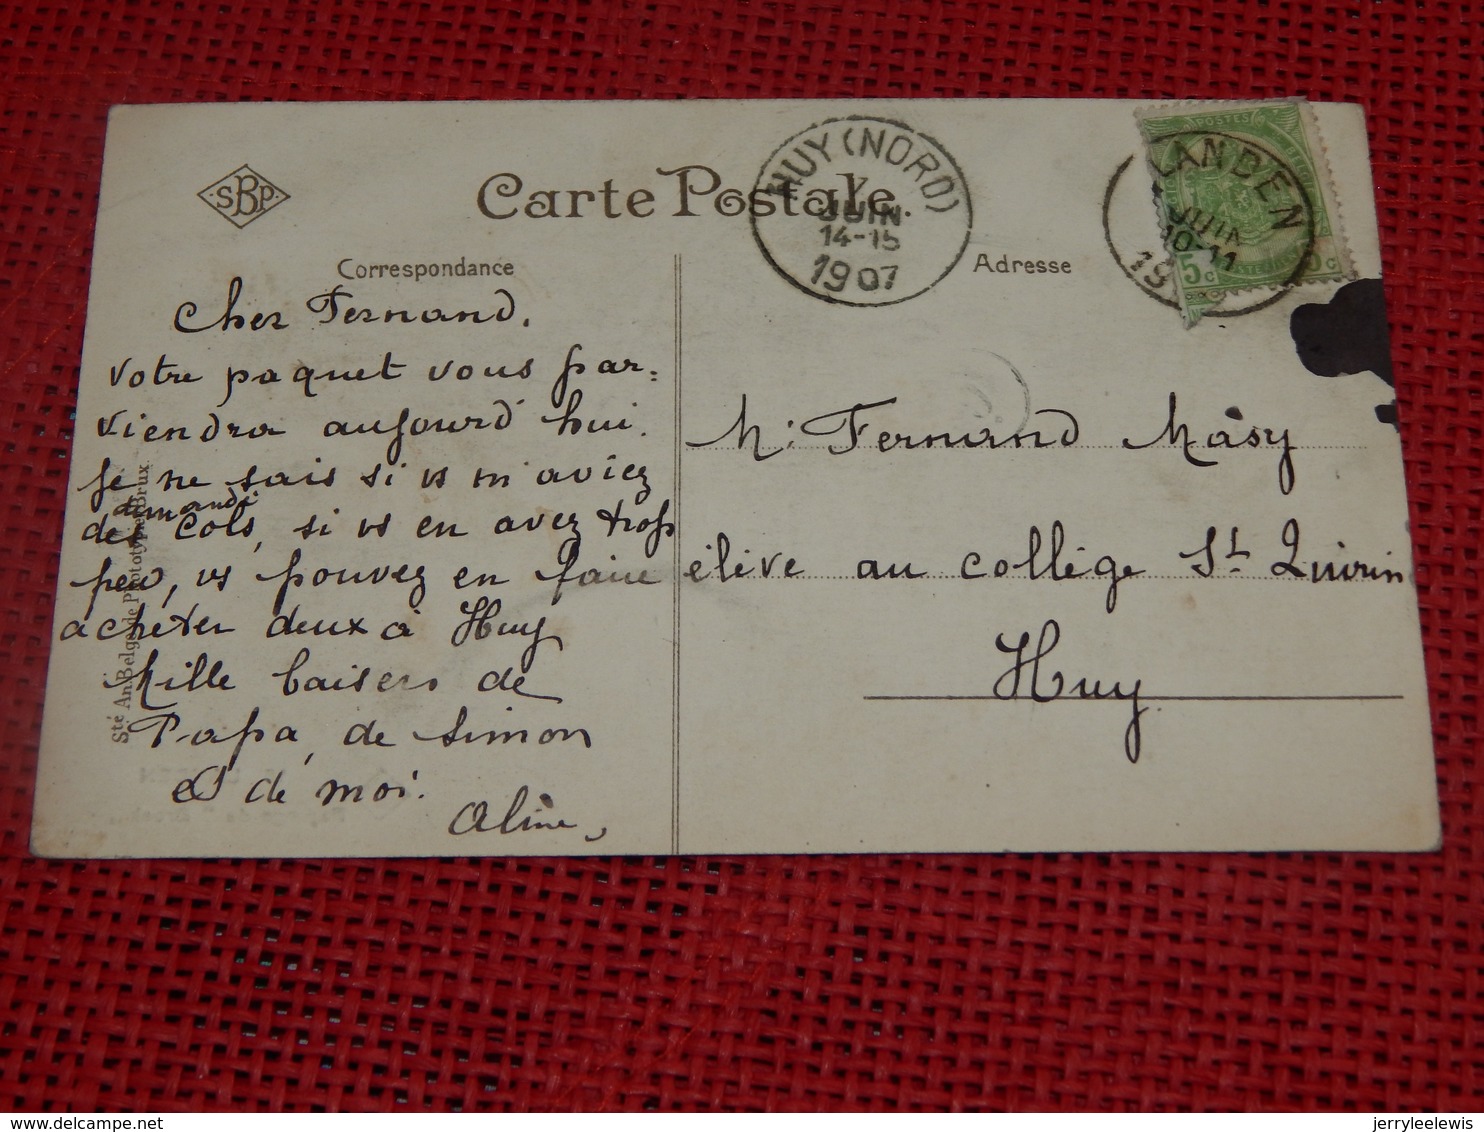 SBP
Carte Postale.
HUY (NORD)
JUIN
14-15
1907
POSTES
LANDEN
JUIN
10-11
19
5c
Correspondance
Adresse
Cher Fernand,
votre paquet vous par=
viendra aujourd'hui.
Je ne sais si vs m'aviez
demandé
des cols, si vs en avez trop
peu, vs pouvez en faire
acheter deux à Huy
Mille baisers de
Papa, de Simon
et de moi.
Aline,
Sté An. Belge de Phototypie, Brux.
M. Fernand Mâsy
élève au collège St Quirin
Huy
delcampe.net
jerryleelewis